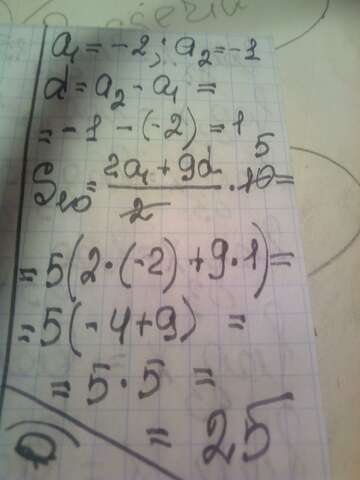 a₁ = -2; a₂ = -1
d = a₂ - a₁ =
= -1 - (-2) = 1
S₁₀ = (2a₁ + 9d)/2 · 10 =
5
= 5(2·(-2) + 9·1) =
= 5(-4 + 9) =
= 5 · 5 =
= 25